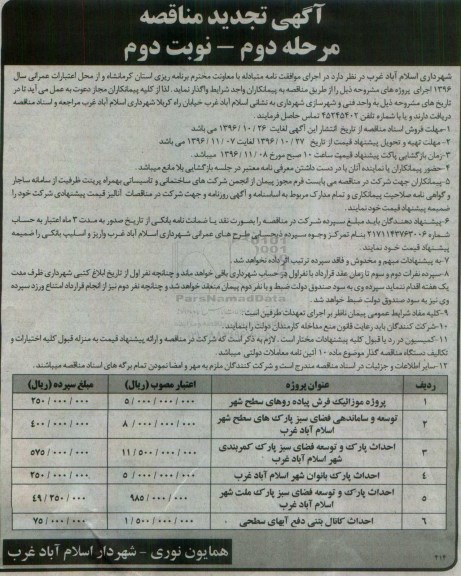 آگهی تجدید مناقصه
مرحله دوم – نوبت دوم
شهرداری اسلام آباد غرب در نظر دارد در اجرای موافقت نامه متبادله با معاونت محترم برنامه ریزی استان کرمانشاه و از محل اعتبارات عمرانی سال
۱۳۹۶ اجرای پروژه های مشروحه ذیل را از طریق مناقصه به پیمانکاران واجد شرایط واگذار نماید. لذا از کلیه پیمانکاران مجاز دعوت به عمل می آید تا در
تاریخ های مشروحه ذیل به واحد فنی و شهرسازی شهرداری به نشانی اسلام آباد غرب خیابان راه کربلا شهرداری اسلام آباد غرب مراجعه و اسناد مناقصه
دریافت دارند و یا با شماره تلفن ۴۵۲۴۵۴۰۲ تماس حاصل فرمایند.
۱-مهلت فروش اسناد مناقصه از تاریخ انتشار این آگهی لغایت ۲۶ / ۱۰ / ۱۳۹۶ می باشد
۲- مهلت تهیه و تحویل پیشنهاد قیمت از تاریخ ۲۷ / ۱۰ / ۱۳۹۶ لغایت ۰۷ / ۱۱ / ۱۳۹۶ می باشد
۳-زمان بازگشایی پاکت پیشنهاد قیمت ساعت ۱۰ صبح مورخ ۰۸ / ۱۱ / ۱۳۹۶ میباشد.
۴-حضور پیمانکاران یا نماینده آنان با در دست داشتن معرفی نامه معتبر در جلسه بازگشایی بلا مانع میباشد.
۵-پیمانکاران جهت شرکت در مناقصه می بایست فرم مجوز پیمان از انجمن شرکت های ساختمانی و تاسیساتی بهمراه پرینت ظرفیت از سامانه ساجار
و گواهی نامه صلاحیت پیمانکاری و تمام مدارک مربوط به اساسنامه و آگهی روزنامه و جهت شرکت در مناقصات آنالیز قیمت پیشنهادی شرکت خود را
ضمیمه پیشنهاد قیمت خود نمایند.
۶-پیشنهاد دهندگان باید مبلغ سپرده شرکت در مناقصه را بصورت نقد یا ضمانت نامه بانکی از تاریخ صدور به مدت ۳ ماه اعتبار به حساب
شماره ۲۱۷۱۱۴۳۷۶۳۰۰۶ بنام تمرکز وجوه سپرده ذیحسابی طرح های عمرانی شهرداری اسلام آباد غرب واریز و اسلیپ بانکی را ضمیمه
پیشنهاد قیمت خود نمایند.
۷-به پیشنهادات مبهم و مخدوش و فاقد سپرده ترتیب اثر داده نخواهد شد.
۸-سپرده نفرات دوم و سوم تا زمان عقد قرارداد با نفر اول در حساب شهرداری باقی خواهد ماند و چنانچه نفر اول از تاریخ ابلاغ کتبی شهرداری ظرف مدت
یک هفته اقدام ننماید سپرده وی به سود صندوق دولت ضبط و با نفر دوم پیمان منعقد خواهد شد و چنانچه نفر دوم نیز از انجام قرارداد امتناع ورزد سپرده
وی نیز به سود صندوق دولت ضبط خواهد شد.
۹-کلیه مفاد شرایط عمومی پیمان ناظر بر اجرای تعهدات طرفین است.
۱۰-شرکت کنندگان باید رعایت قانون منع مداخله کارمندان دولت را بنمایند.
۱۱-کمیسیون در رد یا قبول کلیه پیشنهادات مختار است. لازم به ذکر است که شرکت در مناقصه و ارائه پیشنهاد قیمت به منزله قبول کلیه اختیارات و
تکالیف دستگاه مناقصه گذار موضوع ماده ۱۰ آئین نامه معاملات دولتی میباشد.
۱۲-سایر اطلاعات و جزئیات در اسناد مناقصه مندرج است و شرکت کنندگان ملزم به مهر و امضا نمودن تمام برگه های اسناد مناقصه میباشند.
ردیف عنوان پروژه اعتبار مصوب (ریال) مبلغ سپرده (ریال)
۱ پروژه موزائیک فرش پیاده روهای سطح شهر ۵/۰۰۰/۰۰۰/۰۰۰ ۲۵۰/۰۰۰/۰۰۰
۲ توسعه و ساماندهی فضای سبز پارک های سطح شهر اسلام آباد غرب ۸/۰۰۰/۰۰۰/۰۰۰ ۴۰۰/۰۰۰/۰۰۰
۳ احداث پارک و توسعه فضای سبز پارک کمربندی شهر اسلام آباد غرب ۱۱/۵۰۰/۰۰۰/۰۰۰ ۵۷۵/۰۰۰/۰۰۰
۴ احداث پارک بانوان شهر اسلام آباد غرب ۵/۰۰۰/۰۰۰/۰۰۰ ۲۵۰/۰۰۰/۰۰۰
۵ احداث پارک و توسعه فضای سبز پارک ملت شهر اسلام آباد غرب ۹۸۵/۰۰۰/۰۰۰ ۴۹/۲۵۰/۰۰۰
۶ احداث کانال بتنی دفع آبهای سطحی ۱/۵۰۰/۰۰۰/۰۰۰ ۷۵/۰۰۰/۰۰۰
همایون نوری – شهردار اسلام آباد غرب
۲۱۴
ParsNamadData